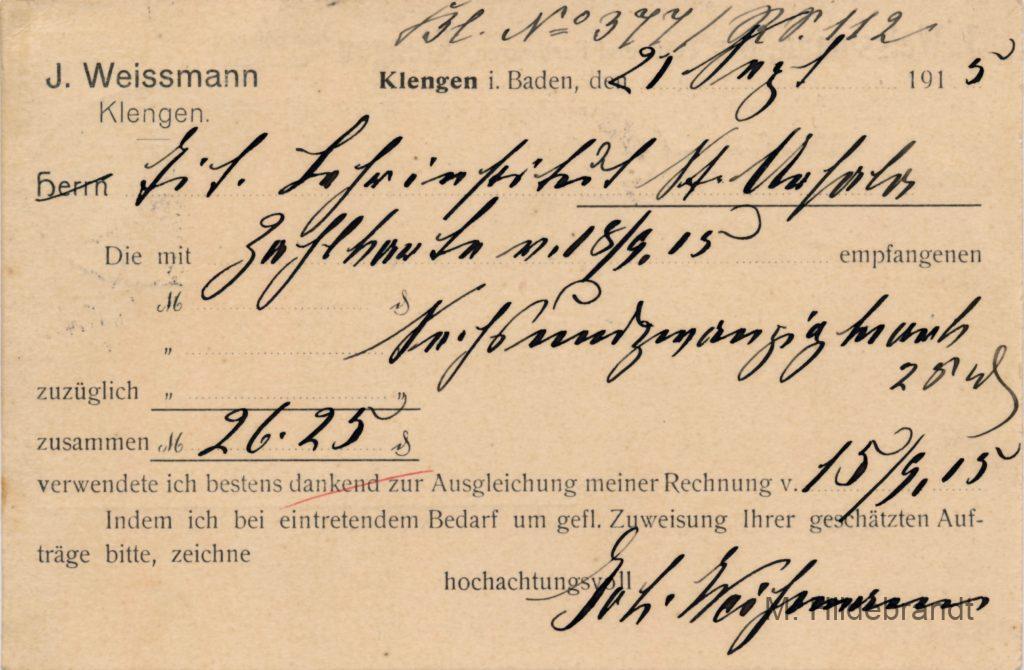 Bl. No 377 / RS. 112
J. Weissmann
Klengen.
Klengen i. Baden, den 21 Sept 1915
Herrn Tit. Lehrinstitut St. Ursula
Die mit Zahlkarte v. 18/9. 15 empfangenen
M ₰
" Sechsundzwanzig Mark
25 ₰
zuzüglich " "
zusammen M 26.25 ₰
verwendete ich bestens dankend zur Ausgleichung meiner Rechnung v. 15/9. 15
Indem ich bei eintretendem Bedarf um gefl. Zuweisung Ihrer geschätzten Auf-
träge bitte, zeichne
hochachtungsvoll
Joh. Weißmann
M. Hildebrandt